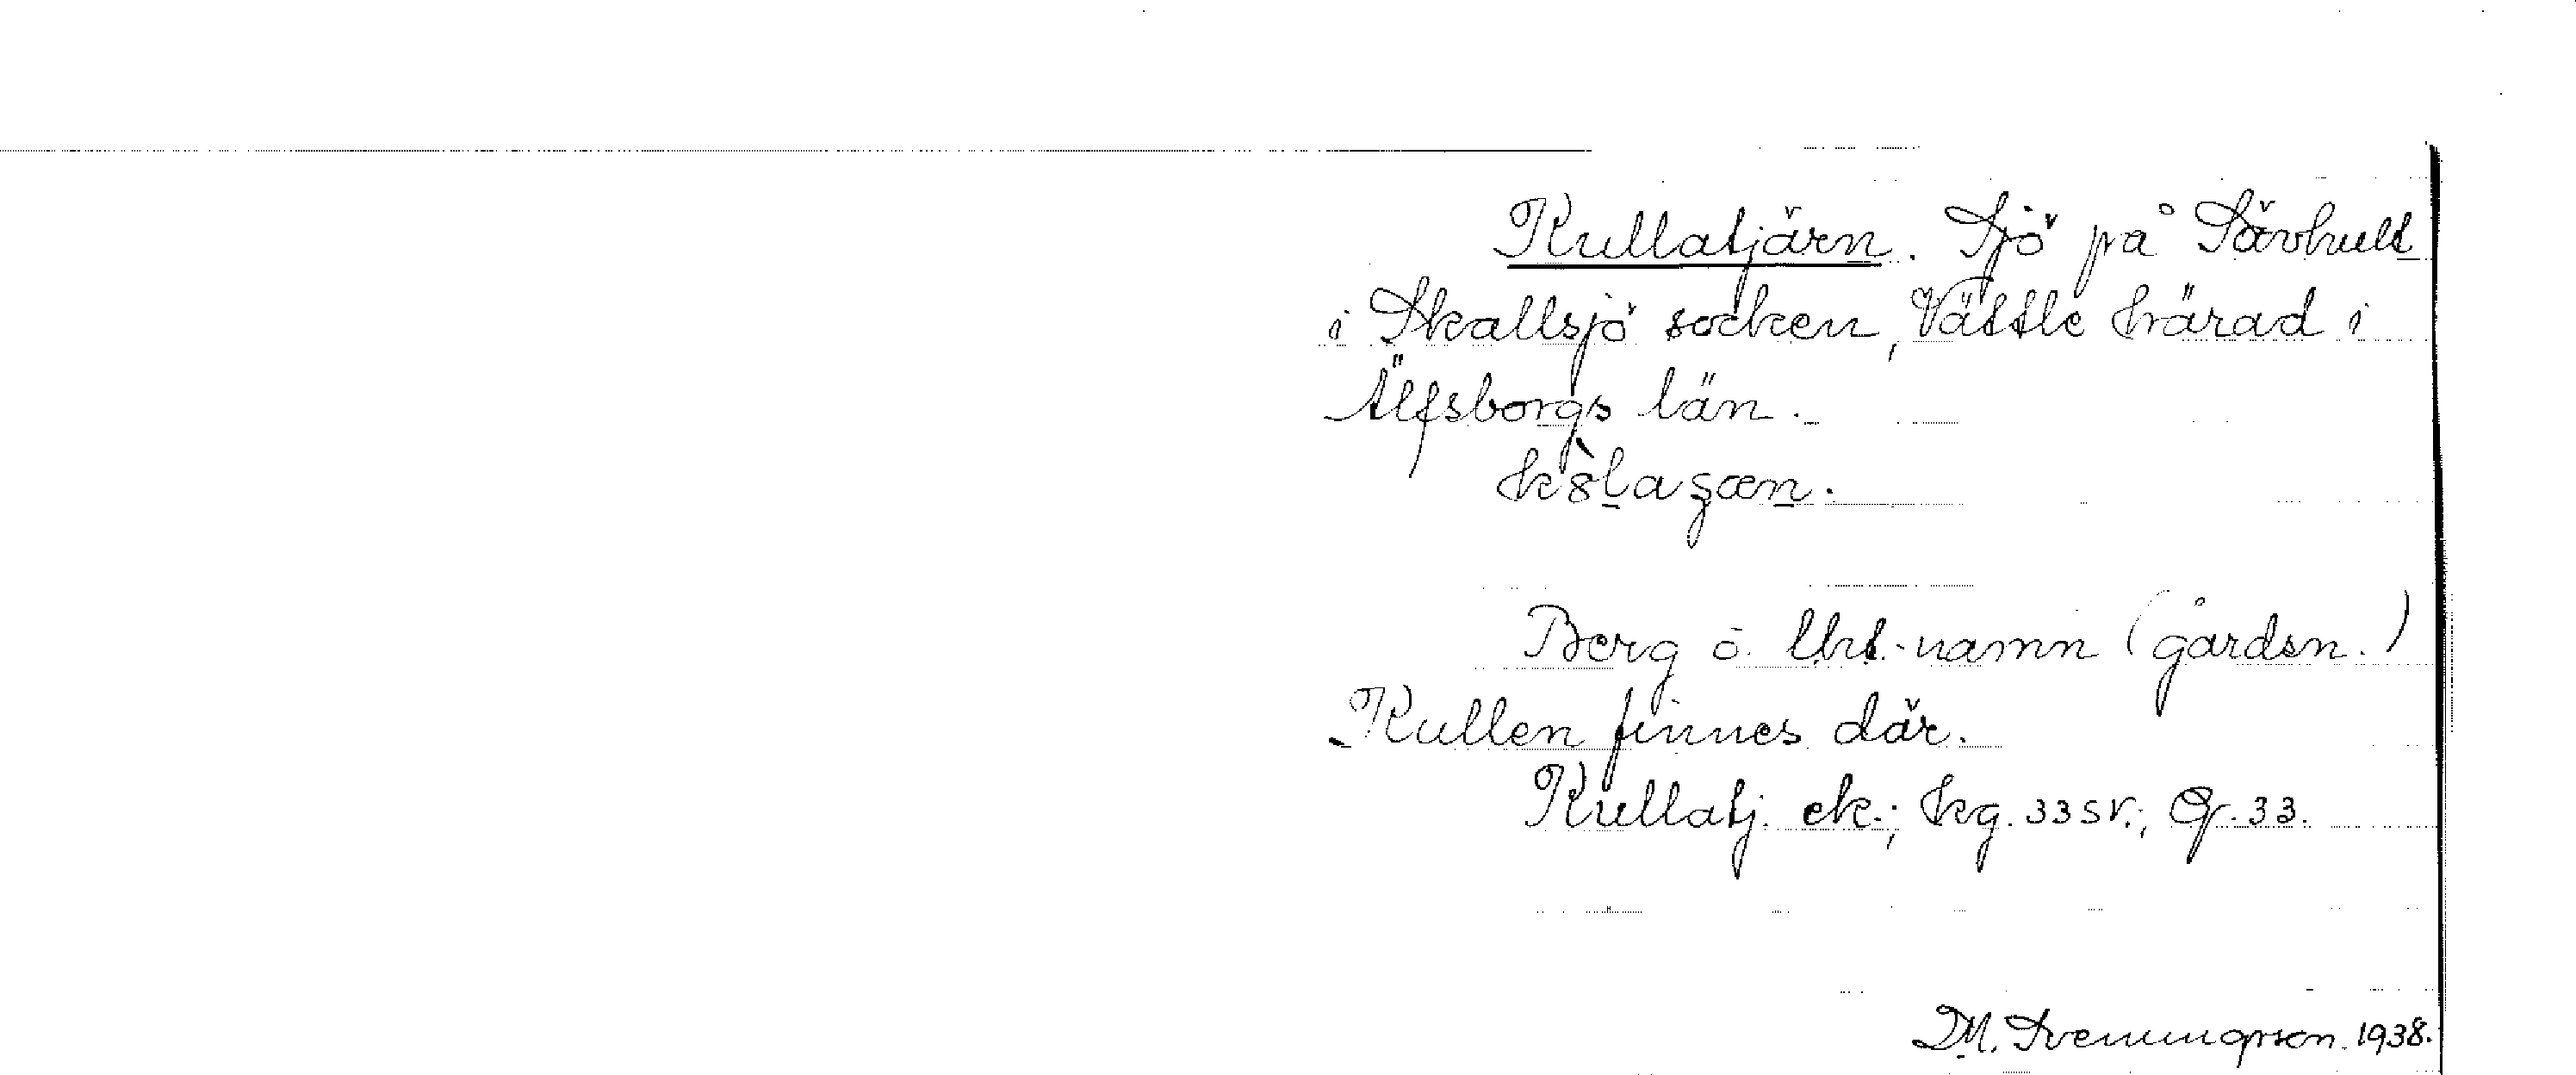 Kullatjärn. Sjö på Sävhult
i Skallsjö socken, Vättle härad i
Älfsborgs län.
Berg o. Urt.-namn (gårdsn.)
Kullen finnes där.
Kullatj. ek.; kg. 33 SV.; G. 33.
D.M. Svenningsson. 1938.